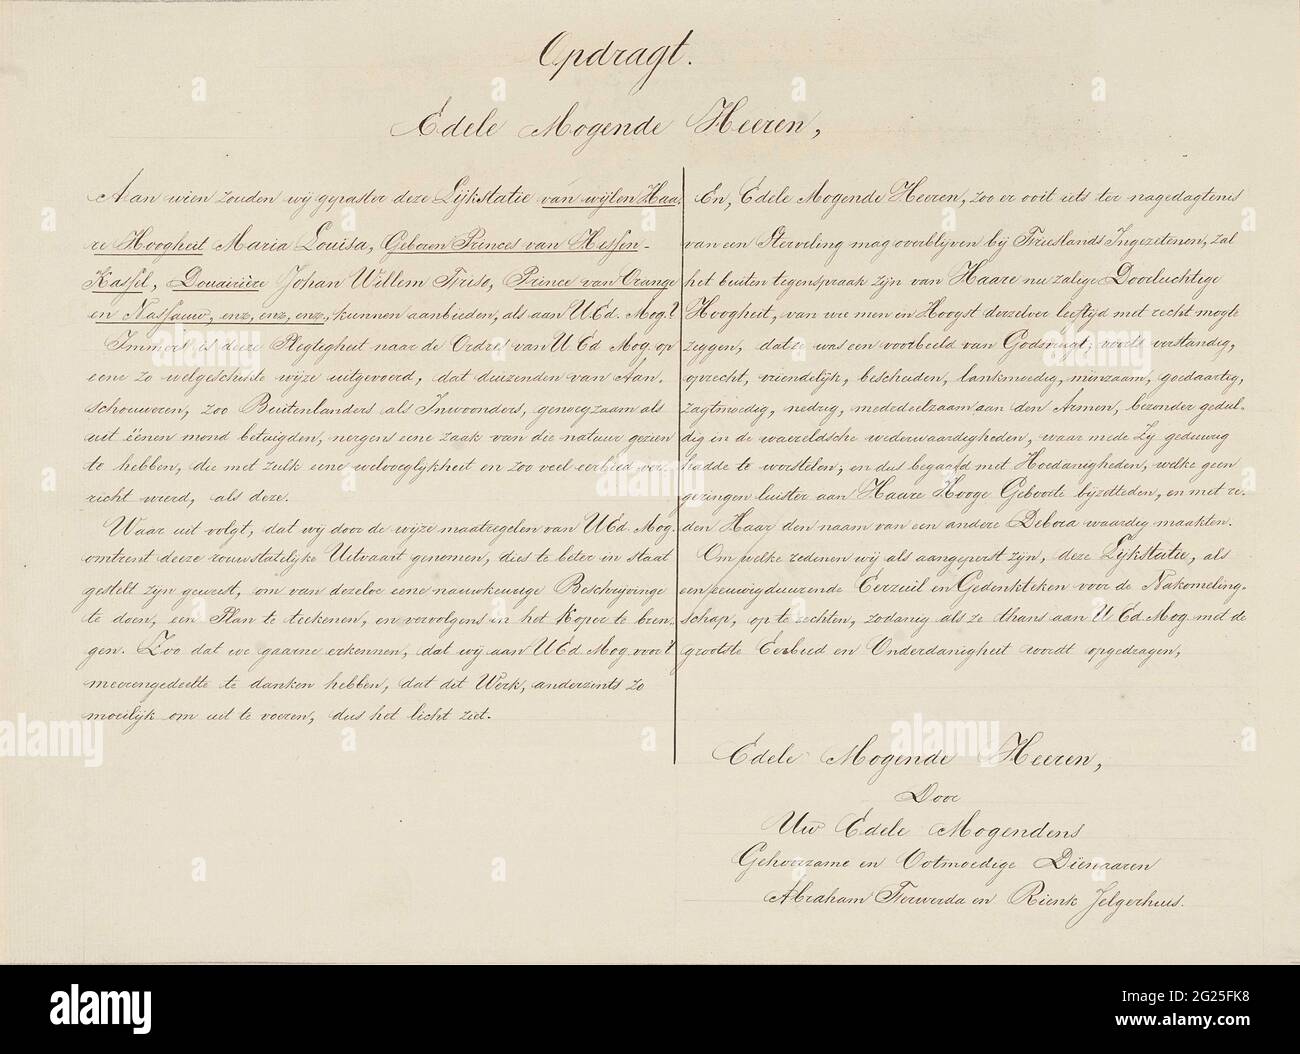 Opdragt.
Edele Mogende Heeren,
Aan wien zouden wij gepaster deze Lijkstatie van wijlen Haa-
re Hoogheit Maria Louisa, Geboren Princes van Hessen-
Kassel, Douairière Johan Willem Friso, Prince van Orange
en Nassauw, enz, enz, enz, kunnen aanbieden, als aan UEd. Mog.?
Immers is deeze Plegtigheit naar de Ordres van UEd Mog. op
eene zo welgeschikte wijze uitgevoerd, dat duizenden van Aan-
schouweren, zoo Buitenlanders als Inwoonders, genoegzaam als
uit éénen mond betuigden, nergens eene zaak van die natuur gezien
te hebben, die met zulk eene welvoeglykheit en zoo veel eerbied ver-
richt wierd, als deze.
Waar uit volgt, dat wij door de wijze maatregelen van UEd. Mog.
omtrent deeze rouwstatelijke Uitvaart genomen, dies te beter in staat
gestelt zijn geweest, om van dezelve eene nauwkeurige Beschrijvinge
te doen, een Plan te teekenen, en vervolgens in het Koper te bren-
gen. Zoo dat we gaarne erkennen, dat wij aan UEd Mog. voor't
meerengedeelte te danken hebben, dat dit Werk, anderzints zo
moeilijk om uit te voeren, dus het licht ziet.
En, Edele Mogende Heeren, zoo er ooit iets ter nagedagtenis
van een Sterveling mag overblijven bij Frieslands Ingezetenen, zal
het buiten tegenspraak zijn van Haare nu zalige Doorluchtige
Hoogheit, van wie men en Hoogst derzelver leeftijd met recht mogte
zeggen, dat ze was een voorbeeld van Godsvrugt; voorts verstandig,
oprecht, vriendelijk, bescheiden, lankmoedig, minzaam, goedaartig,
zagtmoedig, nedrig, mededeelzaam aan den Armen, bezonder gedul-
dig in de waereldsche wederwaardigheden, waar mede Zij geduurig
hadde te worstelen, en dus begaafd met Hoedanigheden, welke geen
geringen luister aan Haare Hooge Geboorte bijzetteden, en met re-
den Haar den naam van een andere Debora waardig maakten.
Om welke redenen wij als aangeperst zijn, deze Lijkstatie, als
een eeuwigduurende Eerzuil en Gedenkteken voor de Nakomeling-
schap, op te rechten, zodanig als ze thans aan UEd. Mog. met de
grootste Eerbied en Onderdanigheit wordt opgedragen,
Edele Mogende Heeren,
Door
Uw Edele Mogendens
Gehoorzame en Ootmoedige Dienaaren
Abraham Ferwerda en Rienk Jelgerhuis.
alamy
Image ID: 2G25FK8
www.alamy.com